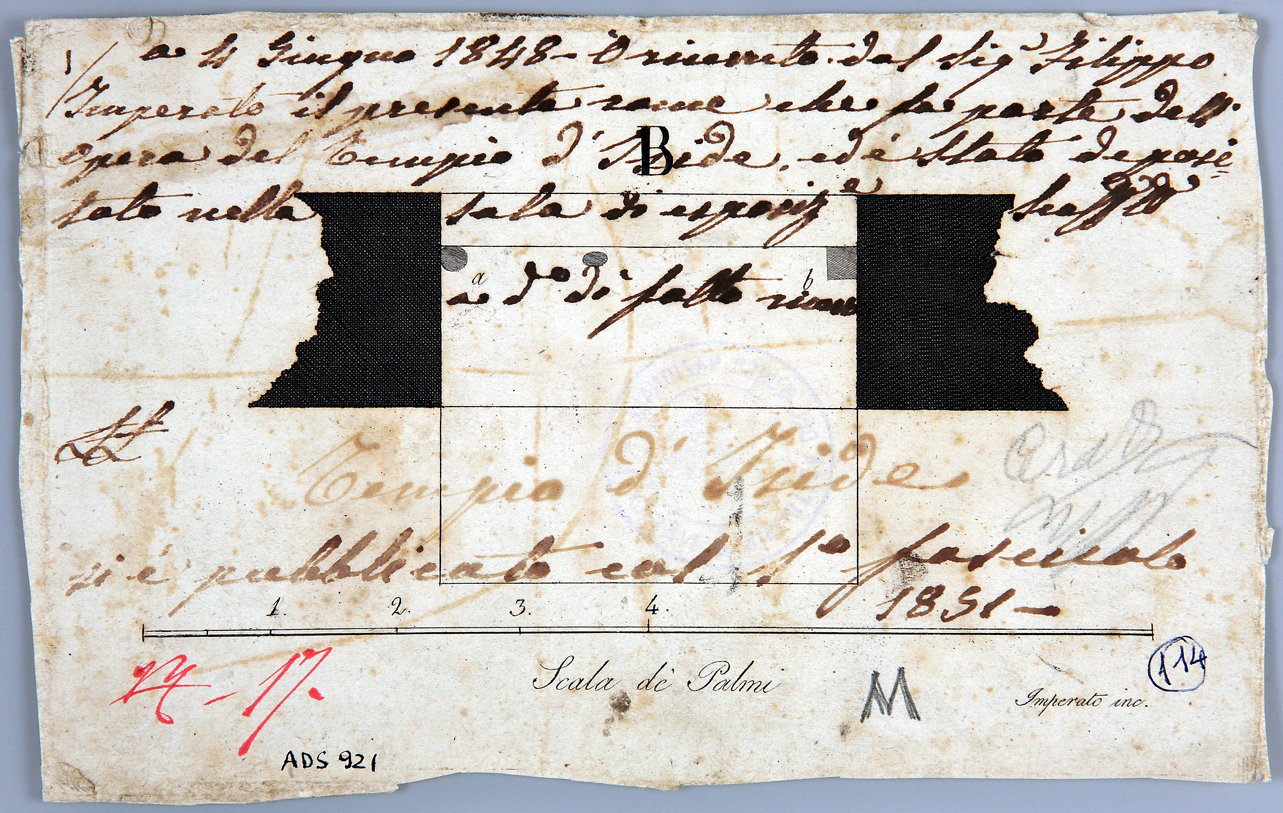 1/ a 4 Giugno 1848 - Ò ricevuto dal Sigʳ Filippo
Imperato il presente rame che fa parte dell'
opera del Tempio d'Iside, ed è stato deposi-
B
tato nella sala di esposizᵉ
a b
a dº di fatto
Tempio d'Iside
si è pubblicato col 1º fascicolo
1851 -
1. 2. 3. 4.
Scala de' Palmi
Imperato inc.
114
M
17.
ADS 921